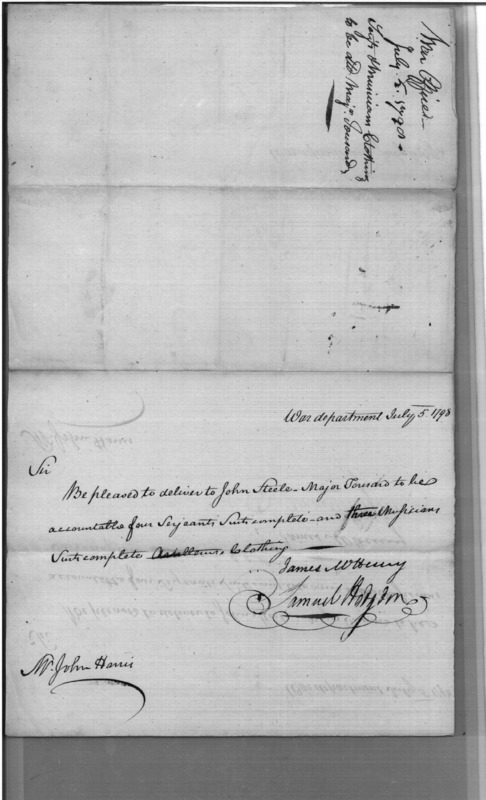 War Office
July 5. 1798.
Serjts & Musicians Clothing
to be dd Majr. Tousard,
War department July 5 1798
Sir
Be pleased to deliver to John Steele - Major Tousard to be
accountable four Serjeants Suits complete - and three Musicians
Suits complete Clothing
James McHenry
Samuel Hodgdon
Mr. John Harris